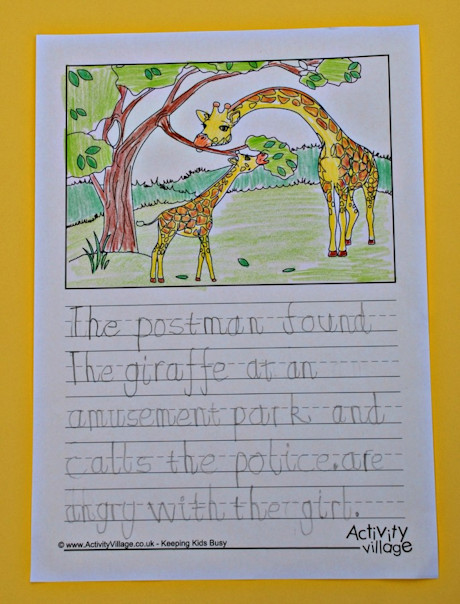 The postman found
The giraffe at an
amusement park and
calls the police.are
angry with the girl.
Activity village
© www.ActivityVillage.co.uk - Keeping Kids Busy